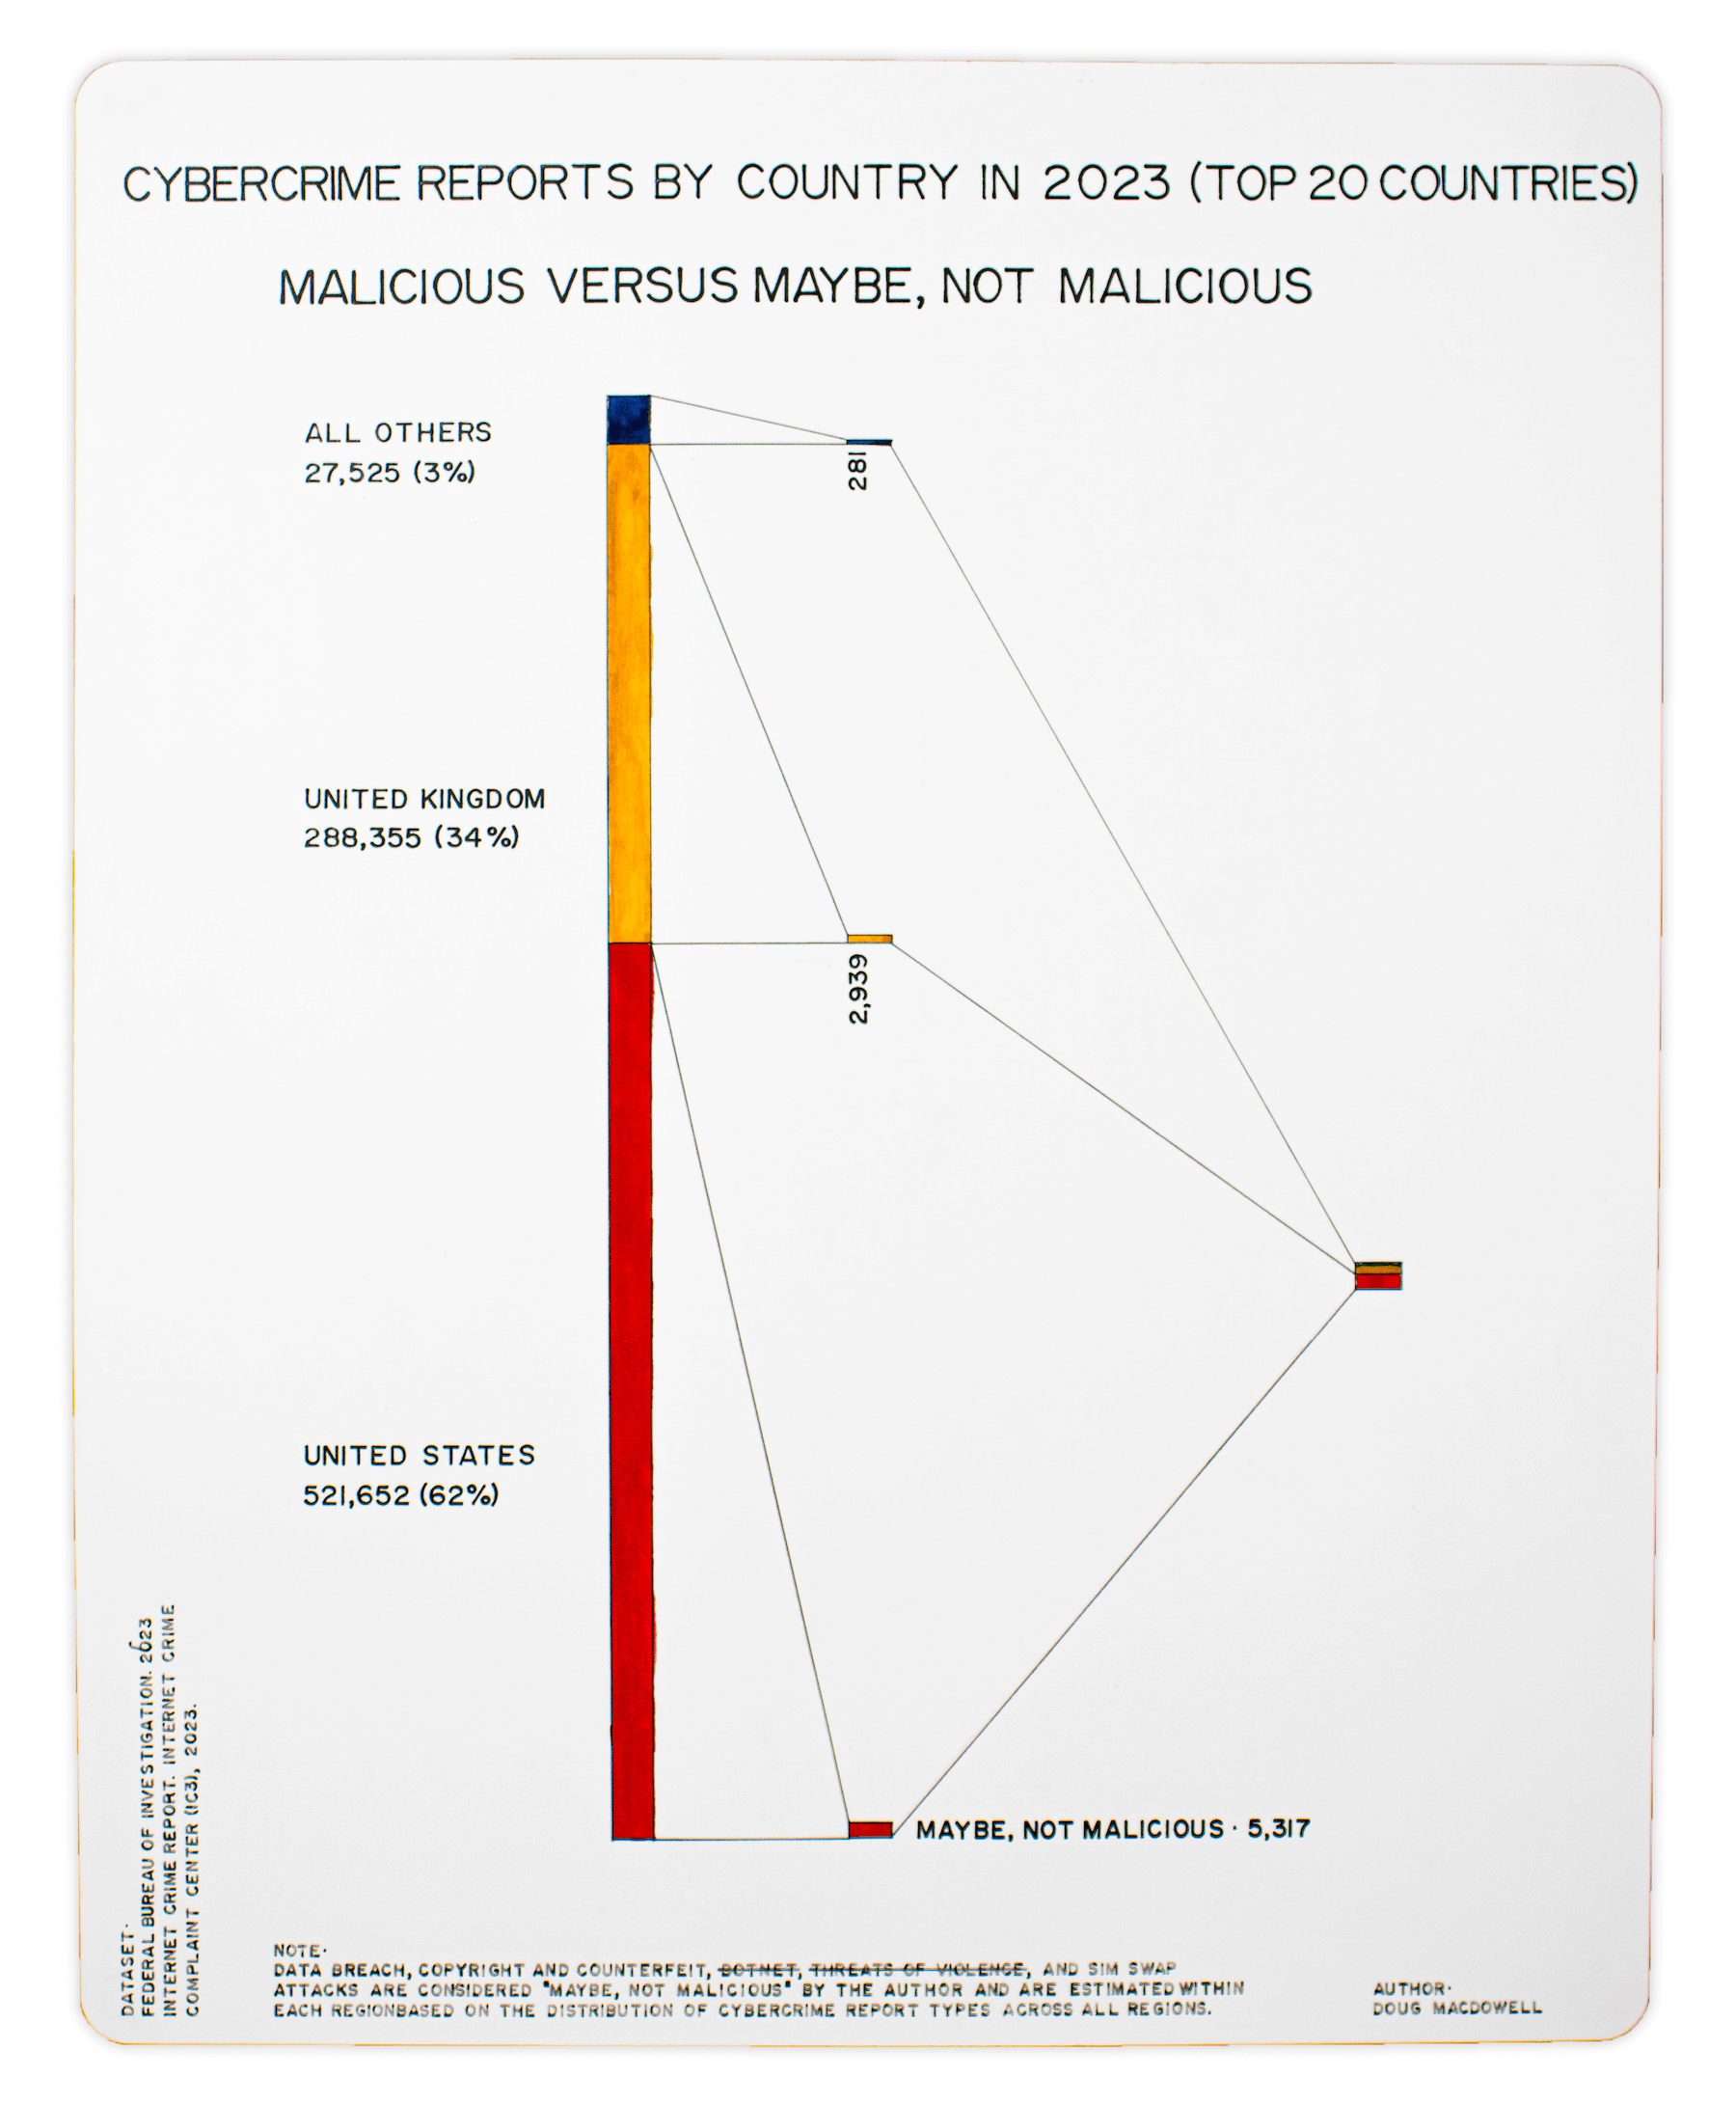 CYBERCRIME REPORTS BY COUNTRY IN 2023 (TOP 20 COUNTRIES)
MALICIOUS VERSUS MAYBE, NOT MALICIOUS
ALL OTHERS
27,525 (3%)
281
UNITED KINGDOM
288,355 (34%)
2,939
UNITED STATES
521,652 (62%)
MAYBE, NOT MALICIOUS · 5,317
DATASET·
FEDERAL BUREAU OF INVESTIGATION. 2023
INTERNET CRIME REPORT. INTERNET CRIME
COMPLAINT CENTER (IC3), 2023.
NOTE·
DATA BREACH, COPYRIGHT AND COUNTERFEIT, BOTNET, THREATS OF VIOLENCE, AND SIM SWAP
ATTACKS ARE CONSIDERED "MAYBE, NOT MALICIOUS" BY THE AUTHOR AND ARE ESTIMATED WITHIN
EACH REGIONBASED ON THE DISTRIBUTION OF CYBERCRIME REPORT TYPES ACROSS ALL REGIONS.
AUTHOR·
DOUG MACDOWELL